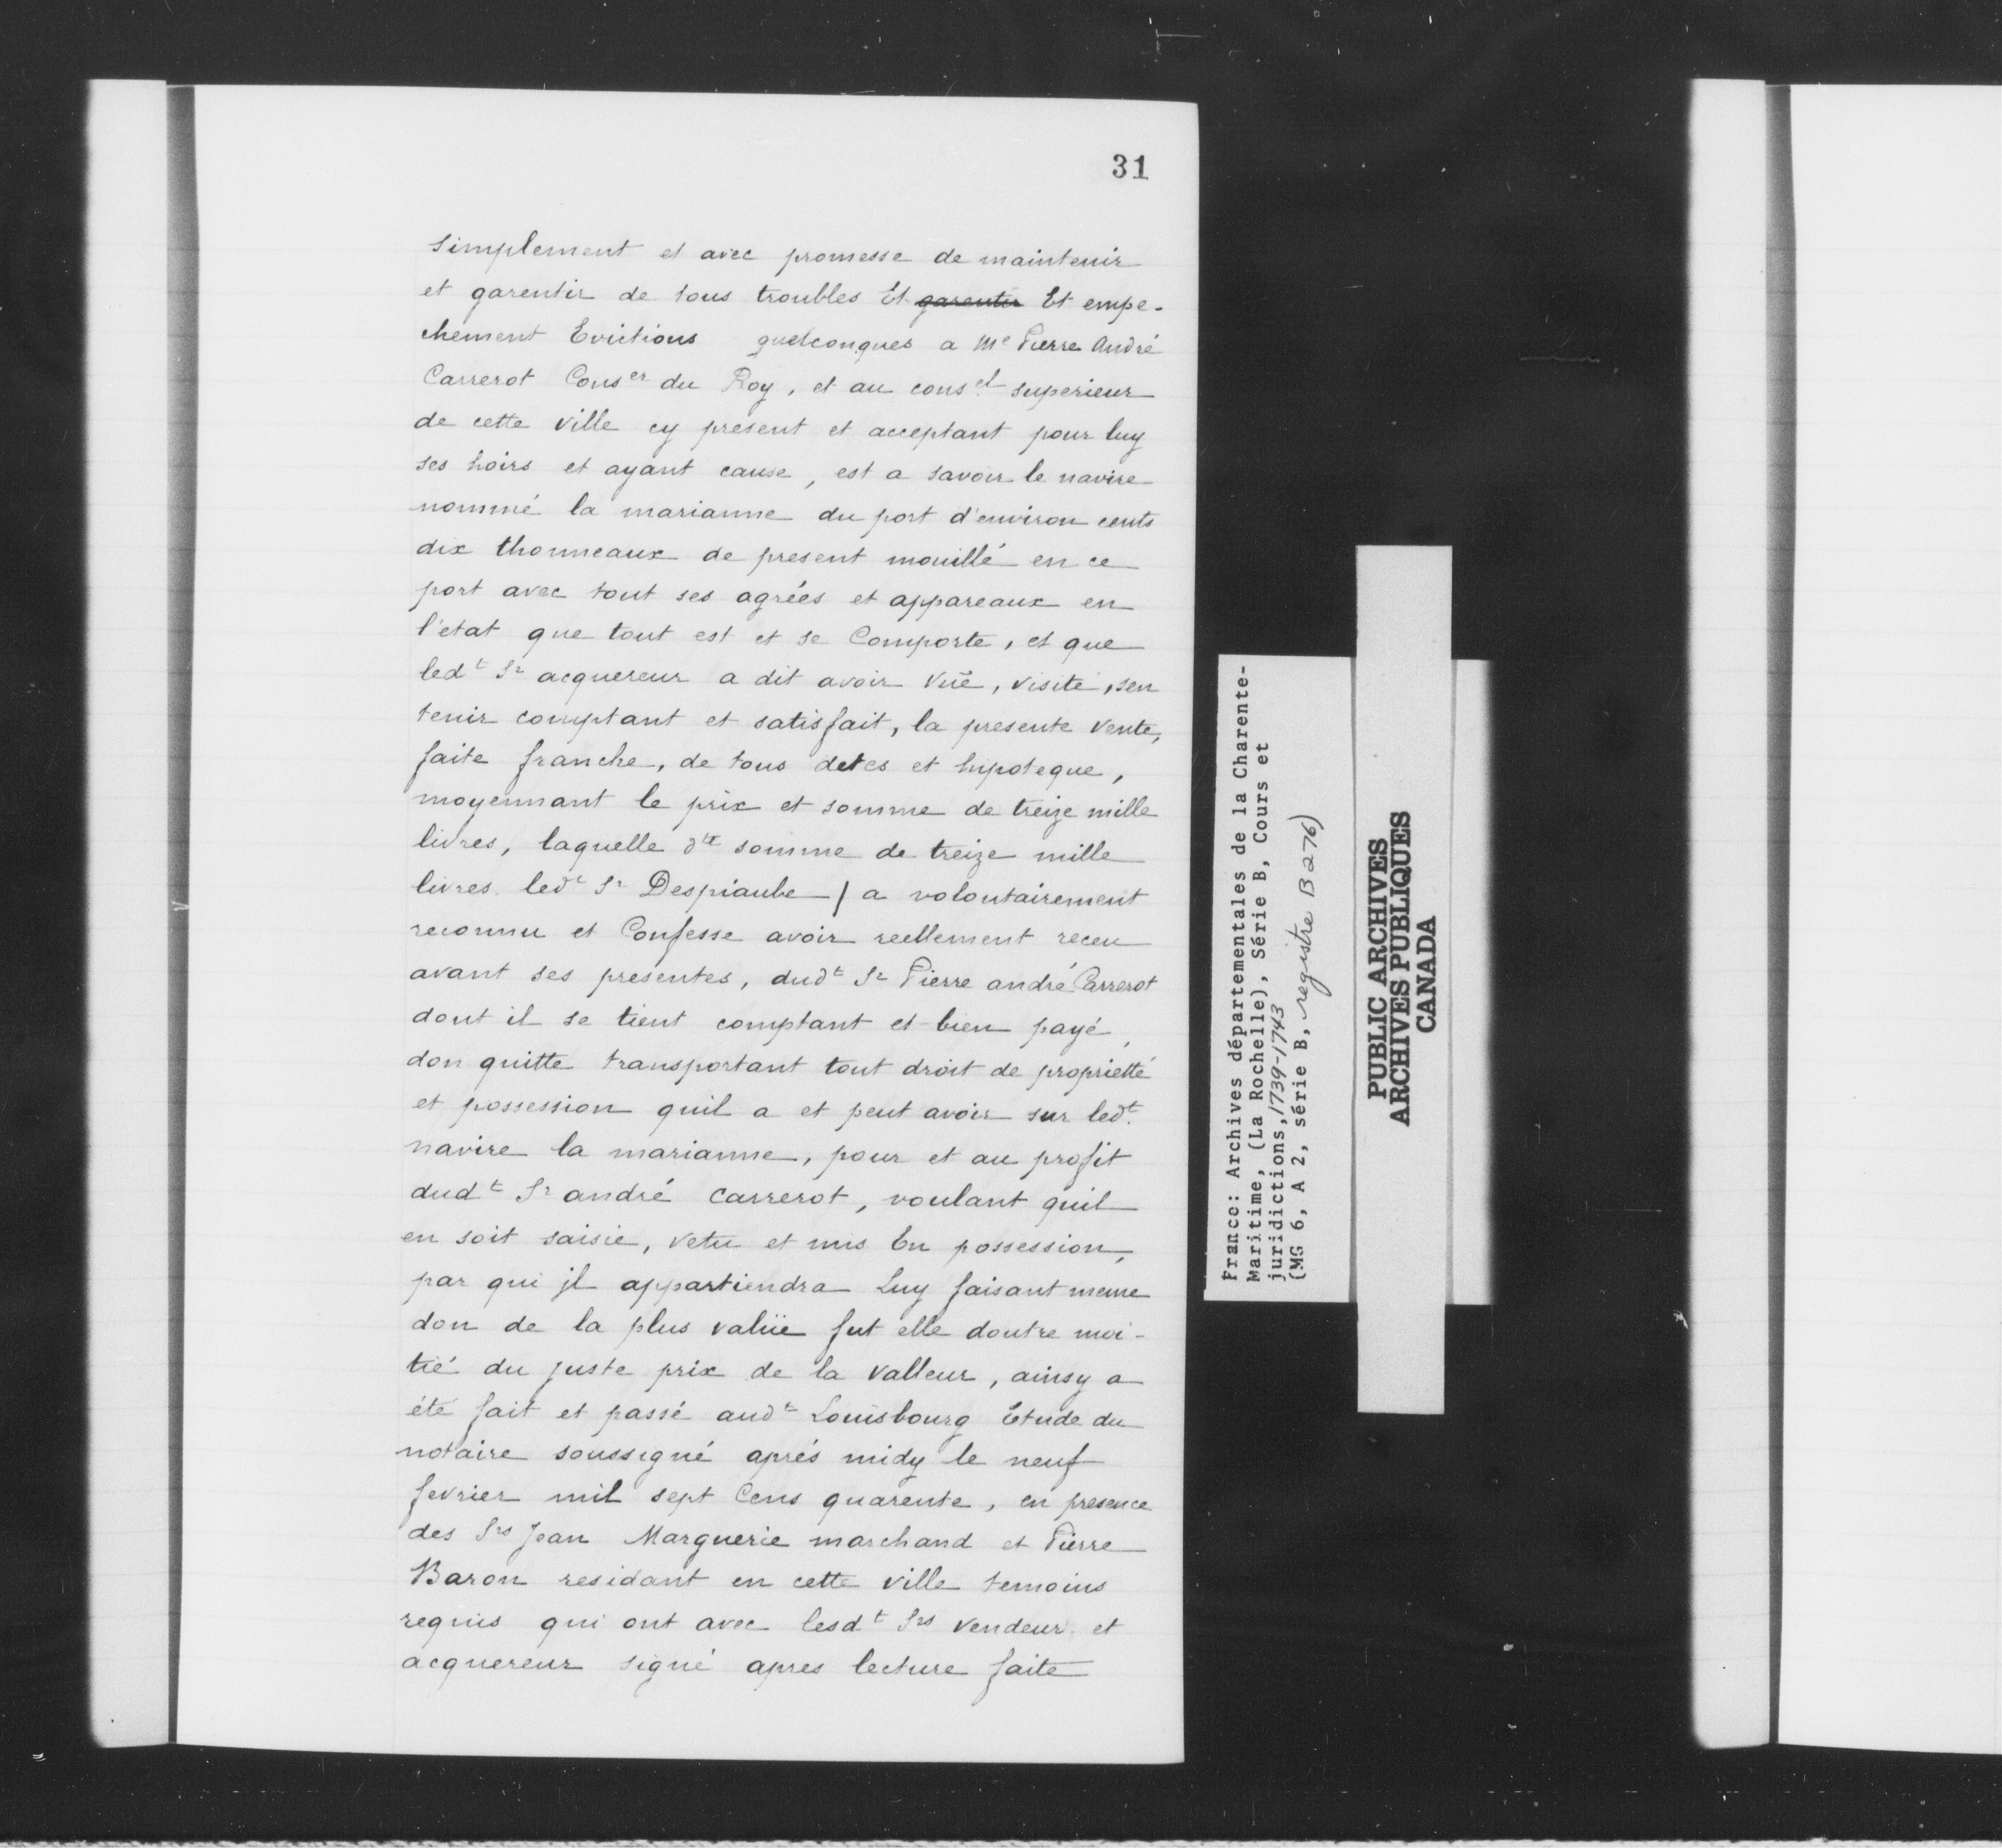 31
simplement et avec promesse de maintenir
et garentir de tous troubles Et garentir Et empe-
chement Evictions quelconques a Me Pierre André
Carrerot Conser du Roy, et au consel superieur
de cette ville cy present et acceptant pour luy
ses hoirs et ayant cause, est a savoir le navire
nommé la marianne du port d'environ cents
dix thonneaux de present mouillé en ce
port avec tout ses agrées et appareaux en
l'etat que tout est et se Comporte, et que
ledt Sr acquereur a dit avoir vüe, visité, sen
tenir comptant et satisfait, la presente vente,
faite franche, de tous detes et hipoteque,
moyennant le prix et somme de treize mille
livres, laquelle dte somme de treize mille
livres ledt Sr Despiaube / a volontairement
reconnu et Confesse avoir reellement receu
avant ses presentes, dudt Sr Pierre andré Carrerot
dont il se tient comptant et bien payé,
don quitte transportant tout droit de proprietté
et possession quil a et peut avoir sur ledt
navire la marianne, pour et au profit
dudt Sr andré Carrerot, voulant quil
en soit saisie, vetu et mis En possession,
par qui jl appartiendra Luy faisant meme
don de la plus valüe fut elle doutre moi-
tié du juste prix de la valleur, ainsy a
été fait et passé audt Louisbourg Etude du
notaire soussigné aprés midy le neuf
fevrier mil sept Cens quarente, en presence
des Srs Jean Marguerie marchand et Pierre
Baron residant en cette ville temoins
requis qui ont avec lesdt Srs vendeur et
acquereur signé apres lecture faite
France: Archives départementales de la Charente-
Maritime, (La Rochelle), Série B, Cours et
juridictions, 1739-1743
(MG 6, A 2, série B, registre B 276)
PUBLIC ARCHIVES
ARCHIVES PUBLIQUES
CANADA